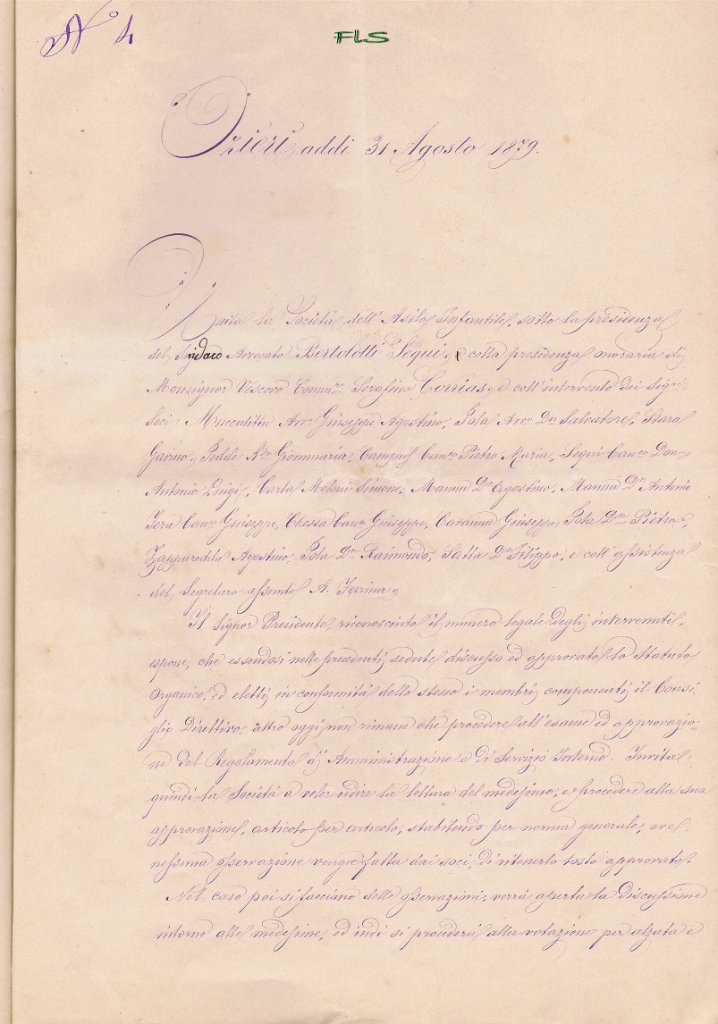 N° 4
FLS
Ozieri addì 31 Agosto 1879.
Unita la Società dell'Asilo Infantile, sotto la presidenza
del Sindaco Avvocato Bertolotti Segui, e colla presidenza onoraria di
Monsignor Vescovo Serafino Corrias, e coll'intervento dei Sigri
Soci: Giuseppe Agostino, Pola Avv. Dn Salvatore,
Gavino, Gianmaria, Canco Pietro Maria, Segni Canco Don
Antonio Luigi, Carta Meloni Simone, Mannu Dn Agostino, Mannu Dn Antonio
Giuseppe, Chessa Giuseppe, Giuseppe, Pola Dn Pietro,
Agostino, Pola Dn Raimondo, Satta Dn Filippo, e coll'assistenza
del Segretario assunto A. Farina.
Il Signor Presidente, riconosciuto il numero legale degli intervenuti,
espone, che essendosi nelle precedenti sedute discusso ed approvato lo Statuto
Organico, ed eletti in conformità dello stesso i membri componenti il Consi-
glio Direttivo, altro oggi non rimane che procedere all'esame ed approvazio-
ne del Regolamento d'Amministrazione e di Servizio Interno. Invita
quindi la Società a voler udire la lettura del medesimo, e procedere alla sua
approvazione, articolo per articolo, stabilendo per norma generale, ove
nessuna osservazione venga fatta dai soci, di ritenerlo tosto approvato.
Nel caso poi si facciano delle osservazioni, verrà aperta la discussione
intorno alle medesime, ed indi si procederà alla votazione per alzata e